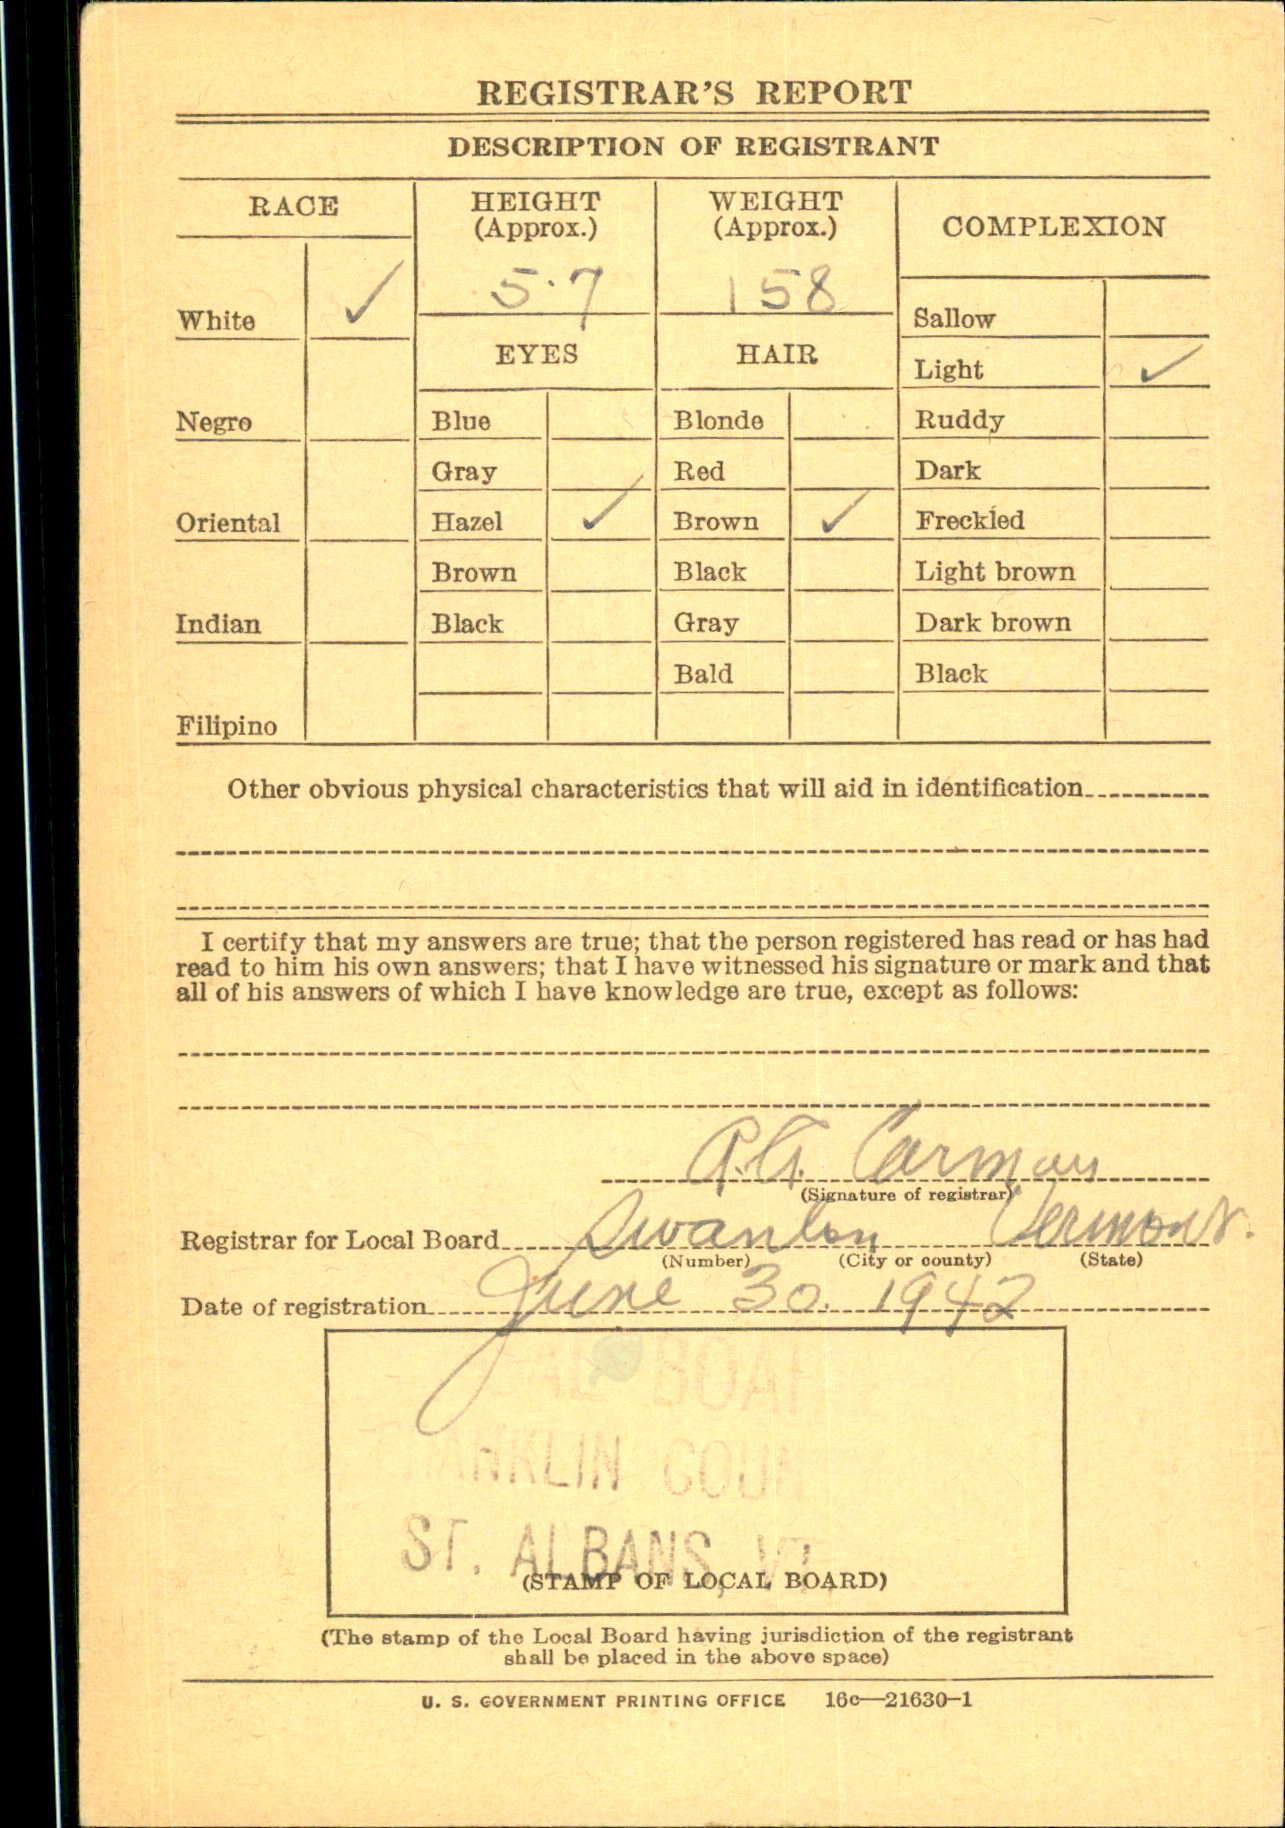 REGISTRAR'S REPORT
DESCRIPTION OF REGISTRANT
RACE
HEIGHT
(Approx.)
WEIGHT
(Approx.)
COMPLEXION
White ✓
5·7
158
Sallow
EYES
HAIR
Light ✓
Negro
Blue
Blonde
Ruddy
Gray
Red
Dark
Oriental
Hazel ✓
Brown ✓
Freckled
Brown
Black
Light brown
Indian
Black
Gray
Dark brown
Bald
Black
Filipino
Other obvious physical characteristics that will aid in identification
I certify that my answers are true; that the person registered has read or has had
read to him his own answers; that I have witnessed his signature or mark and that
all of his answers of which I have knowledge are true, except as follows:
Carman
(Signature of registrar)
Registrar for Local Board Swanton Vermont.
(Number) (City or county) (State)
Date of registration June 30. 1942
AL BOAR
ANKLIN COUN
ST. ALBANS, VT.
(STAMP OF LOCAL BOARD)
(The stamp of the Local Board having jurisdiction of the registrant
shall be placed in the above space)
U. S. GOVERNMENT PRINTING OFFICE 16c—21630-1